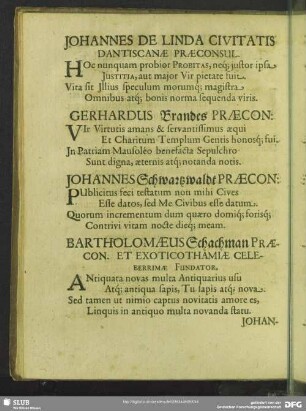 JOHANNES DE LINDA CIVITATIS
DANTISCANÆ PRÆCONSUL.
HOc nunquam probior PROBITAS, neq; justor ipsa
JUSTITIA, aut major Vir pietate fuit.
Vita sit Illius speculum morumq; magistra
Omnibus atq; bonis norma sequenda viris.
GERHARDUS Brandes PRÆCON:
VIr Virtutis amans & servantissimus æqui
Et Charitum Templum Gentis honosq; fui.
In Patriam Mausolêo benefacta Sepulchro
Sunt digna, æternis atq; notanda notis.
JOHANNES Schwartzwaldt PRÆCON:
PUblicitus feci testatum non mihi Cives
Esse datos, sed Me Civibus esse datum.
Quorum incrementum dum quæro domiq; forisq;
Contrivi vitam nocte dieq; meam.
BARTHOLOMÆUS Schachman PRÆ-
CON. ET EXOTICOTHAMIÆ CELE-
BERRIMÆ FUNDATOR.
ANtiquata novas multa Antiquarius usu
Atq; antiqua sapis, Tu sapis atq; nova.
Sed tamen ut nimio captus novitatis amore es,
Linquis in antiquo multa novanda statu.
JOHAN-
SLUB
Wir führen Wissen.